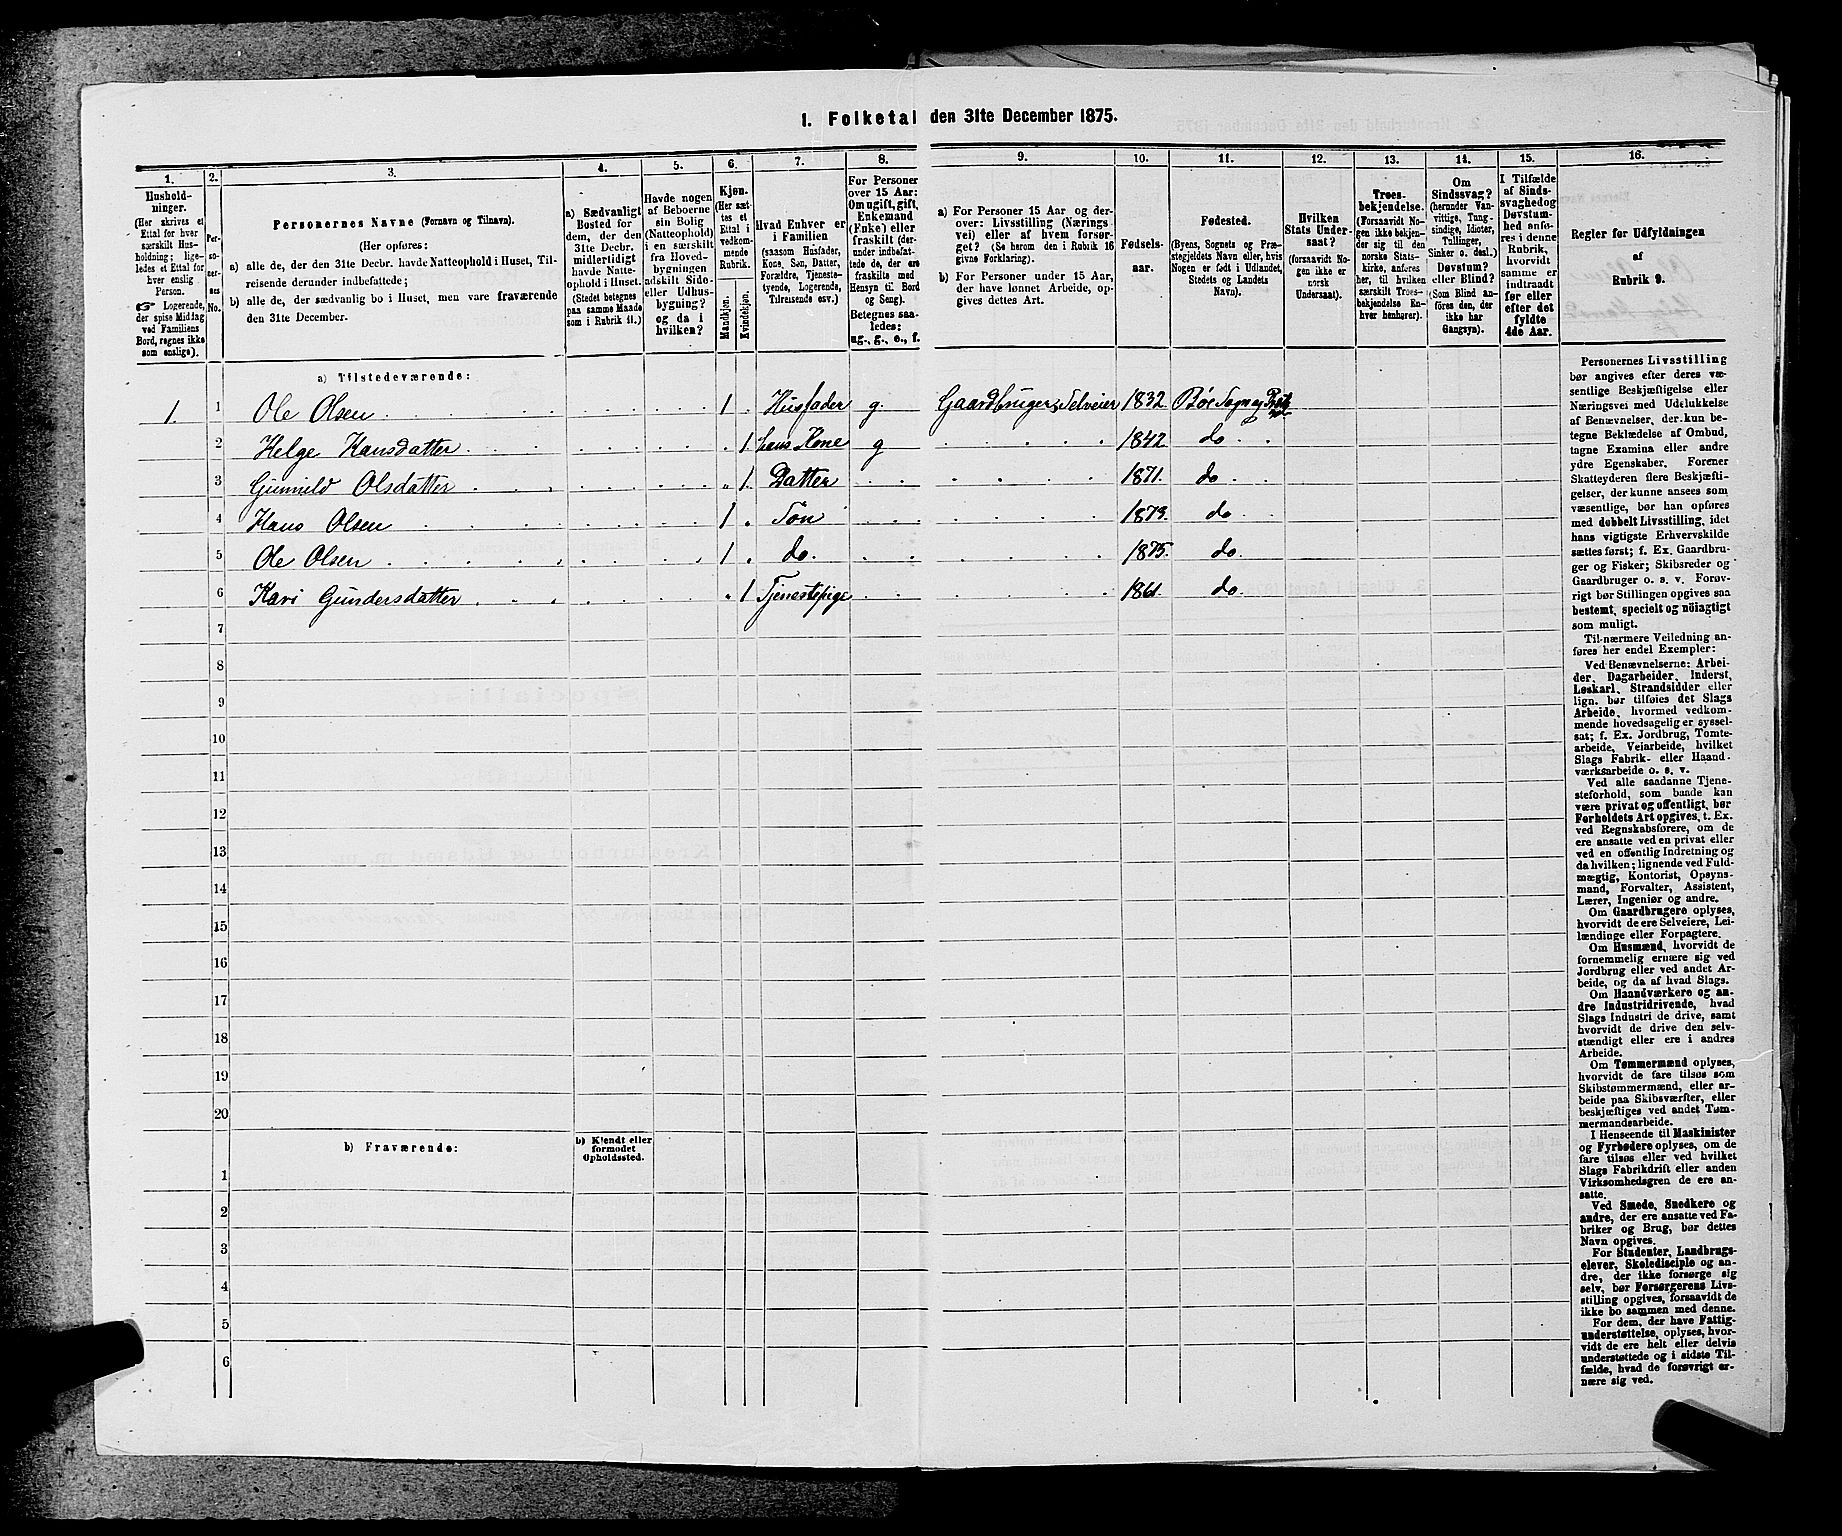 1. Folketal den 31te December 1875.
1. 2. 3. 4. 5. 6. 7. 8. 9. 10. 11. 12. 13. 14. 15. 16.
Hushold-
ninger.
(Her skrives et
Ettal for hver
særskilt Hus-
holdning; lige-
ledes et Ettal for
hver enslig
Person.
☞ Logerende,
der spise Middag
ved Familiens
Bord, regnes ikke
som enslige).
Per-
so-
ner-
nes
No.
Personernes Navne (Fornavn og Tilnavn).
(Her opføres:
a) alle de, der den 31te Decbr. havde Natteophold i Huset, Til-
reisende derunder indbefattede;
b) alle de, der sædvanlig bo i Huset, men vare fraværende
den 31te December.
a) Sædvanligt
Bosted for
dem, der den
31te Decbr.
midlertidigt
havde Natte-
ophold i Huset.
(Stedet betegnes
paa samme Maade
som i Rubrik 11.)
Havde nogen
af Beboerne
sin Bolig
(Natteophold)
i en særskilt
fra Hoved-
bygningen
adskilt Side-
eller Udhus-
bygning?
og da i
hvilken?
Kjøn.
(Her sæt-
tes et
Ettal i
vedkom-
mende
Rubrik.
Mandkjøn.
Kvindekjøn.
Hvad Enhver er
i Familien
(saasom Husfader,
Kone, Søn, Datter,
Forældre, Tjeneste-
tyende, Logerende,
Tilreisende osv.)
For Personer
over 15 Aar:
Om ugift, gift,
Enkemand
(Enke) eller
fraskilt (der-
under indbefat-
tede de, der ere
fraskilte med
Hensyn til Bord
og Seng).
Betegnes saa-
ledes:
ug., g., e., f.
a) For Personer 15 Aar og der-
over: Livsstilling (Nærings-
vei) eller af hvem forsør-
get? (Se herom den i Rubrik 16
givne Forklaring).
b) For Personer under 15 Aar,
der have lønnet Arbeide, op-
gives dettes Art.
Fødsels-
aar.
Fødested.
(Byens, Sognets og Præ-
stegjeldets Navn eller, hvis
Nogen er født i Udlandet,
Stedets og Landets
Navn).
Hvilken
Stats Under-
saat?
(forsaavidt No-
gen ikke er
norsk
Undersaat).
Troes-
bekjendelse.
(Forsaavidt No-
gen ikke bekjen-
der sig til den
norske Stats-
kirke, anføres
her, til hvilken
særskilt Troes-
bekjendelse En-
hver henhører).
Om
Sindssvag?
(herunder Van-
vittige, Tung-
sindige, Idioter,
Tullinger,
Sinker o. desl.)
Døvstum?
eller Blind?
(Som Blind an-
føres den, der
ikke har
Gangsyn).
I Tilfælde
af Sinds-
svaghed og
Døvstum-
hed anfø-
res i denne
Rubrik,
hvorvidt
samme er
indtraadt
før eller
efter det
fyldte
4de Aar.
Regler for Udfyldningen
af
Rubrik 9.
a) Tilstedeværende:
1. 1 Ole Olsen 1 Husfader g. Gaardbruger, Selveier 1832. Bøe Sogn og
2 Helge Hansdatter 1 hans Kone g 1842 do
3 Gunnild Olsdatter 1 Datter 1871. do
4 Hans Olsen 1 Søn 1873. do
5 Ole Olsen 1 do. 1875. do.
6 Kari Gundersdatter 1 Tjenestepige 1861. do.
7
8
9
10
11
12
13
14
15
16
17
18
19
20
b) Fraværende:
b) Kjendt eller
formodet
Opholdssted.
1
2
3
4
5
6
Personernes Livsstilling
bør angives efter deres væ-
sentlige Beskjæftigelse eller
Næringsvei med Udelukkelse
af Benævnelser, der kun be-
tegne Beklædelse af Ombud,
tagne Examina eller andre
ydre Egenskaber. Forener
Skatteyderen flere Beskjæfti-
gelser, der kunne ansees som
væsentlige, bør han opføres
med dobbelt Livsstilling, idet
hans vigtigste Erhvervskilde
sættes først; f. Ex. Gaardbru-
ger og Fisker; Skibsreder og
Gaardbruger o. s. v. Forøv-
rigt bør Stillingen opgives saa
bestemt, specielt og nöiagtigt
som muligt.
Til nærmere Veiledning an-
føres her endel Exempler:
Ved Benævnelserne: Arbei-
der, Dagarbeider, Inderst,
Løskarl, Strandsidder eller
lign. bør tilføies det Slags
Arbeide, hvormed vedkom-
mende hovedsagelig er syssel-
sat; f. Ex. Jordbrug, Tomte-
arbeide, Veiarbeide, hvilket
Slags Fabrik- eller Haand-
værksarbeide o. s. v.
Ved alle saadanne Tjene-
steforhold, som baade kan
være privat og offentligt, bør
Forholdets Art opgives, t. Ex.
ved Regnskabsførere, om de
ere ansatte ved en privat eller
ved en offentlig Indretning og
da hvilken; lignende ved Fuld-
mægtig, Kontorist, Opsyns-
mand, Forvalter, Assistent,
Lærer, Ingeniør og andre.
Om Gaardbrugere oplyses,
hvorvidt de ere Selveiere, Lei-
lændinge eller Forpagtere.
Om Husmænd, hvorvidt de
fornemmelig ernære sig ved
Jordbrug eller ved andet Ar-
beide, og da af hvad Slags.
Om Haandværkere og an-
dre Industridrivende, hvad
Slags Industri de drive, samt
hvorvidt de drive den selv-
stændigt eller ere i andres
Arbeide.
Om Tømmermænd oplyses,
hvorvidt de fare tilsøs som
Skibstømmermænd, eller ar-
beide paa Skibsværfter, eller
beskjæftiges ved andet Tøm-
mermandsarbeide.
I Henseende til Maskinister
og Fyrbødere oplyses, om de
fare tilsøs eller ved hvilket
Slags Fabrikdrift eller anden
Virksomhedsgren de ere an-
satte.
Ved Smede, Snedkere og
andre, der ere ansatte ved Fa-
briker og Brug, bør dettes
Navn opgives.
For Studenter, Landbrugs-
elever, Skoledisciple og an-
dre, der ikke forsørge sig
selv, bør Forsørgerens Livs-
stilling opgives, forsaavidt de
ikke bo sammen med denne.
For dem, der have Fattig-
understøttelse, oplyses, hvor-
vidt de ere helt eller delvis
understøttede og i sidste Til-
fælde, hvad de forøvrigt er-
nære sig ved.